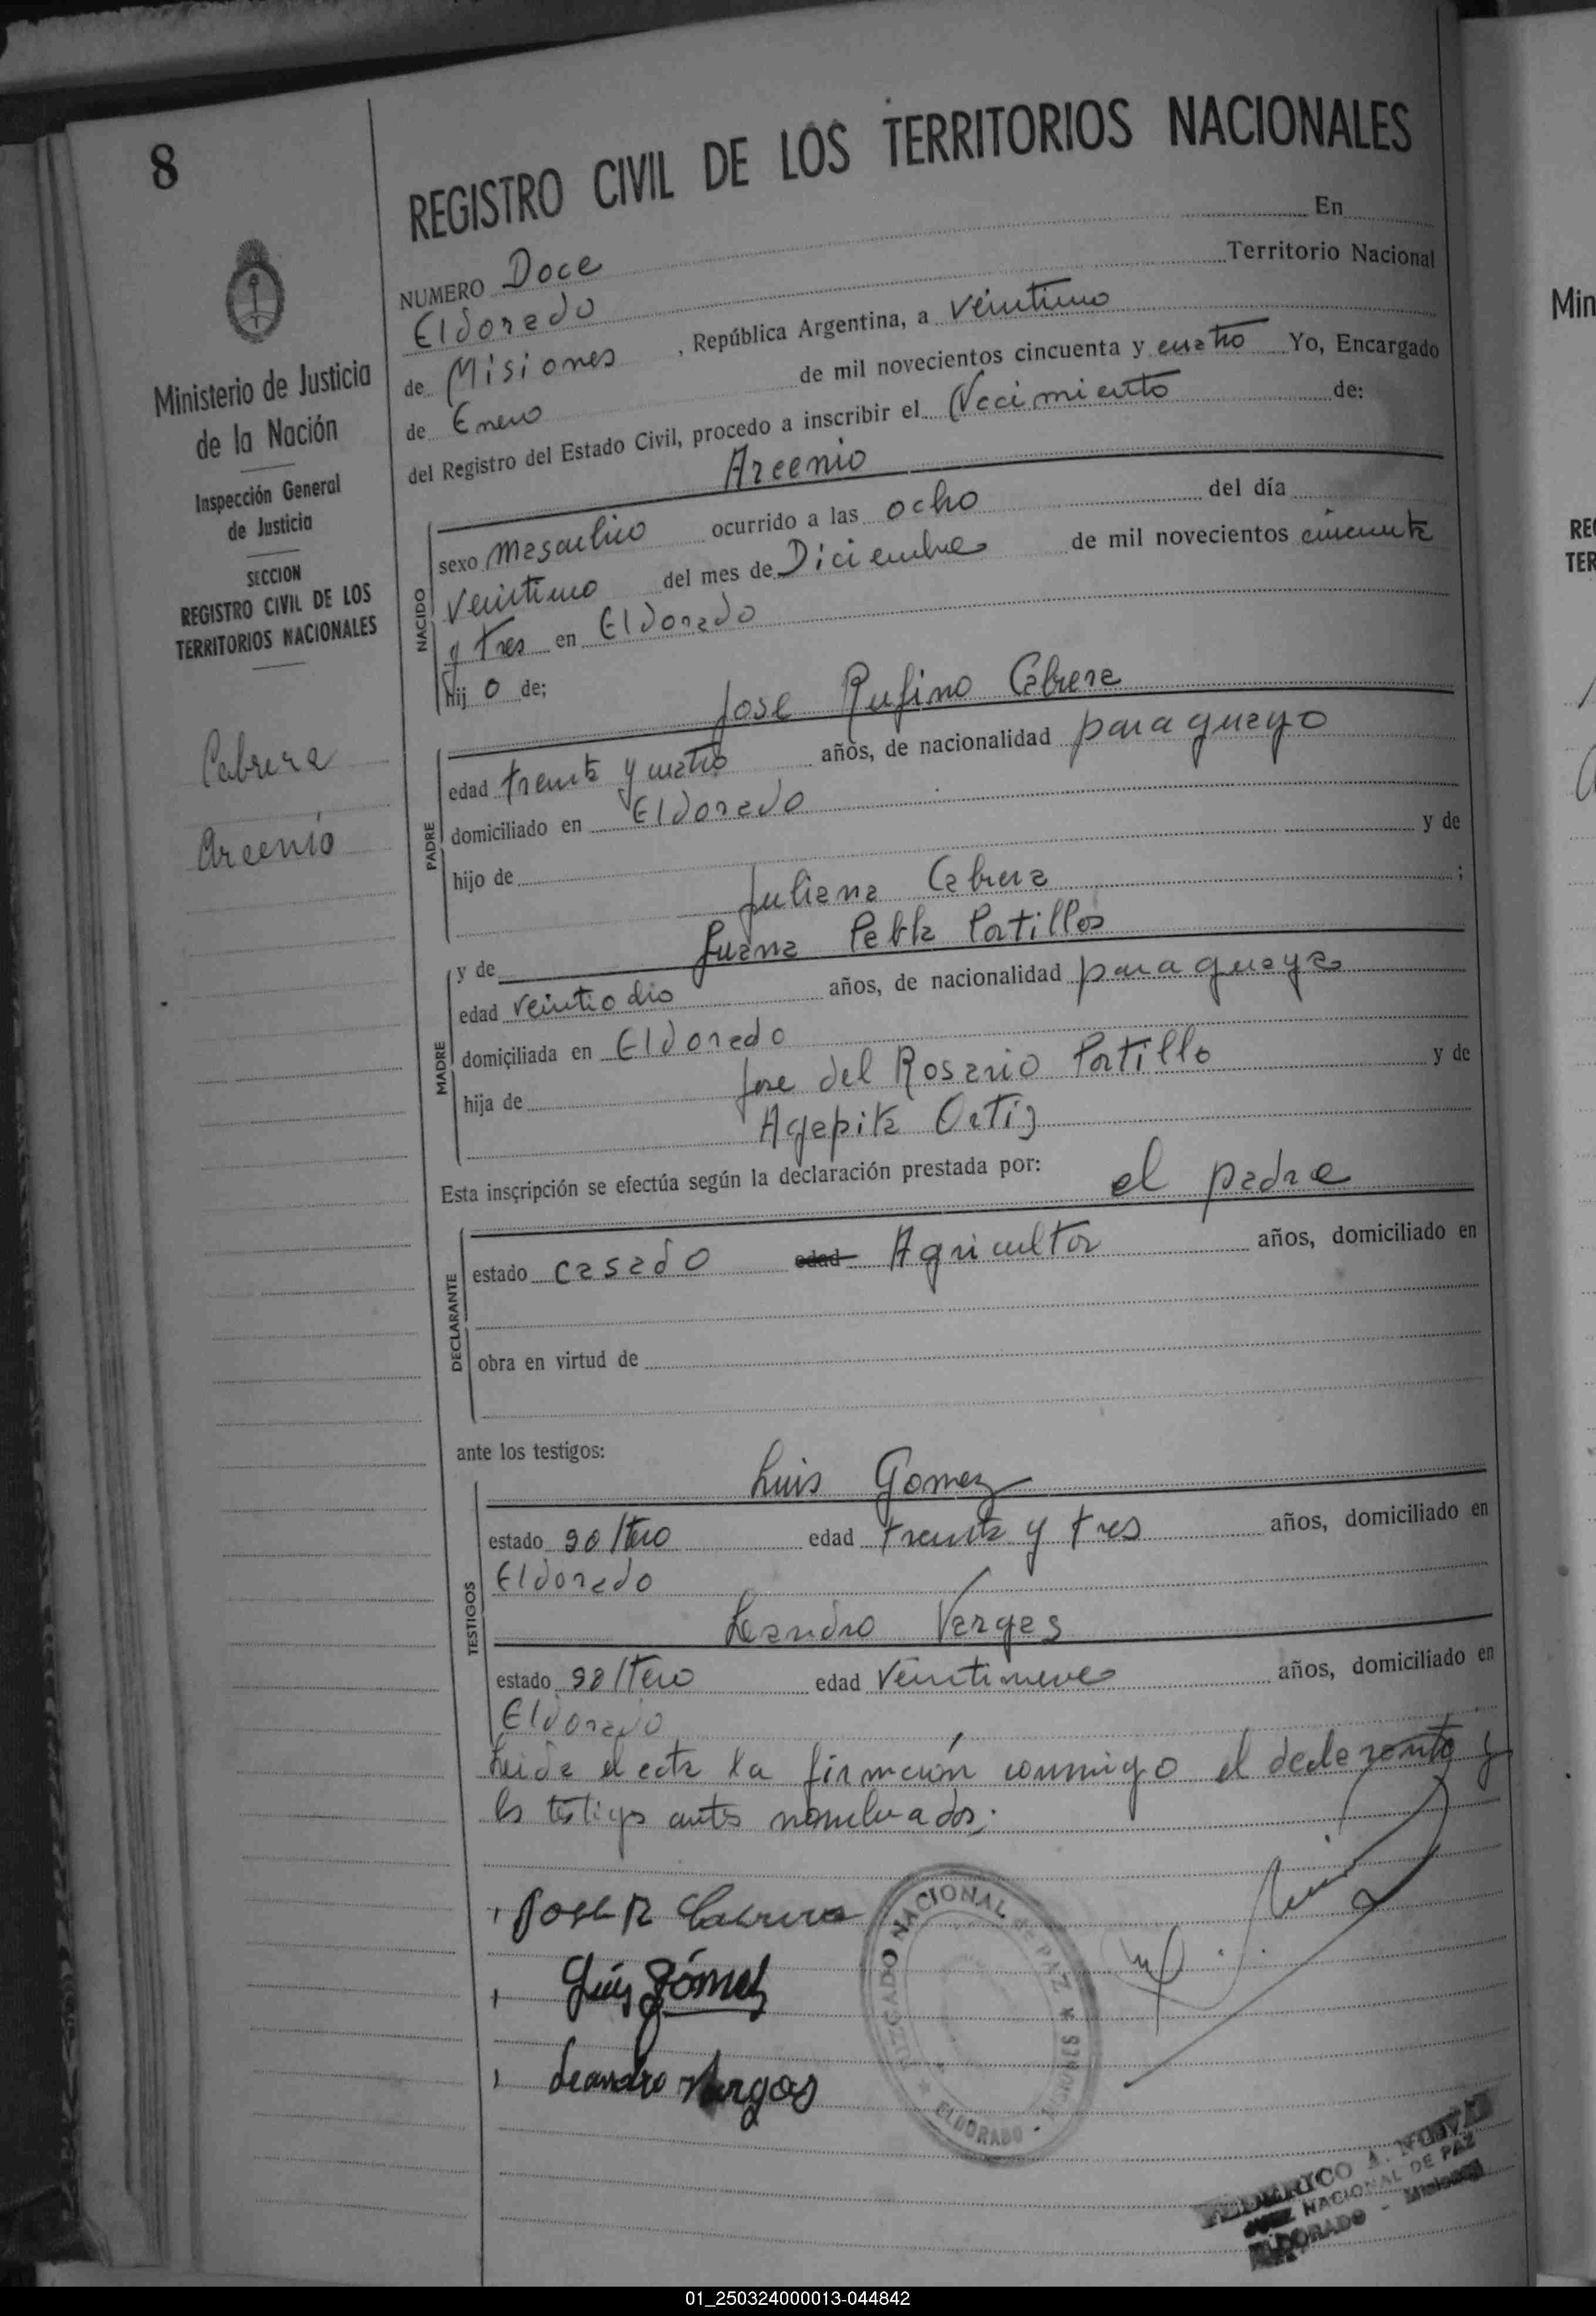 8
REGISTRO CIVIL DE LOS TERRITORIOS NACIONALES
Ministerio de Justicia
de la Nación
Inspección General
de Justicia
SECCION
REGISTRO CIVIL DE LOS
TERRITORIOS NACIONALES
Cabrera
Arcenio
NUMERO Doce En
Eldorado Territorio Nacional
de Misiones, República Argentina, a veintiuno
de Enero de mil novecientos cincuenta y cuatro Yo, Encargado
del Registro del Estado Civil, procedo a inscribir el Nacimiento de:
Arcenio
NACIDO
sexo masculino ocurrido a las ocho del día
veintiuno del mes de Diciembre de mil novecientos cincuenta
y tres en Eldorado
hijo de;
Jose Rufino Cabrera
PADRE
edad treinta y cuatro años, de nacionalidad paraguayo
domiciliado en Eldorado
hijo de y de
Juliana Cabrera ;
y de Juana Pabla Portillos
MADRE
edad veintiocho años, de nacionalidad paraguaya
domiciliada en Eldorado
hija de Jose del Rosario Portillo y de
Agapita Ortiz
Esta inscripción se efectúa según la declaración prestada por: el padre
DECLARANTE
estado casado edad Agricultor años, domiciliado en
obra en virtud de
ante los testigos:
Luis Gomez
TESTIGOS
estado soltero edad treinta y tres años, domiciliado en
Eldorado
Leandro Vargas
estado soltero edad veintinueve años, domiciliado en
Eldorado
Leida el acta la firmarón conmigo el declarante y
los testigos antes nombrados.
Jose R Cabrera
Luis Gómez
Leandro Vargas
JUZGADO NACIONAL de PAZ
ELDORADO - MISIONES
FEDERICO A.
JUEZ NACIONAL DE PAZ
ELDORADO - Misiones
Min
RE
TER
01_250324000013-044842